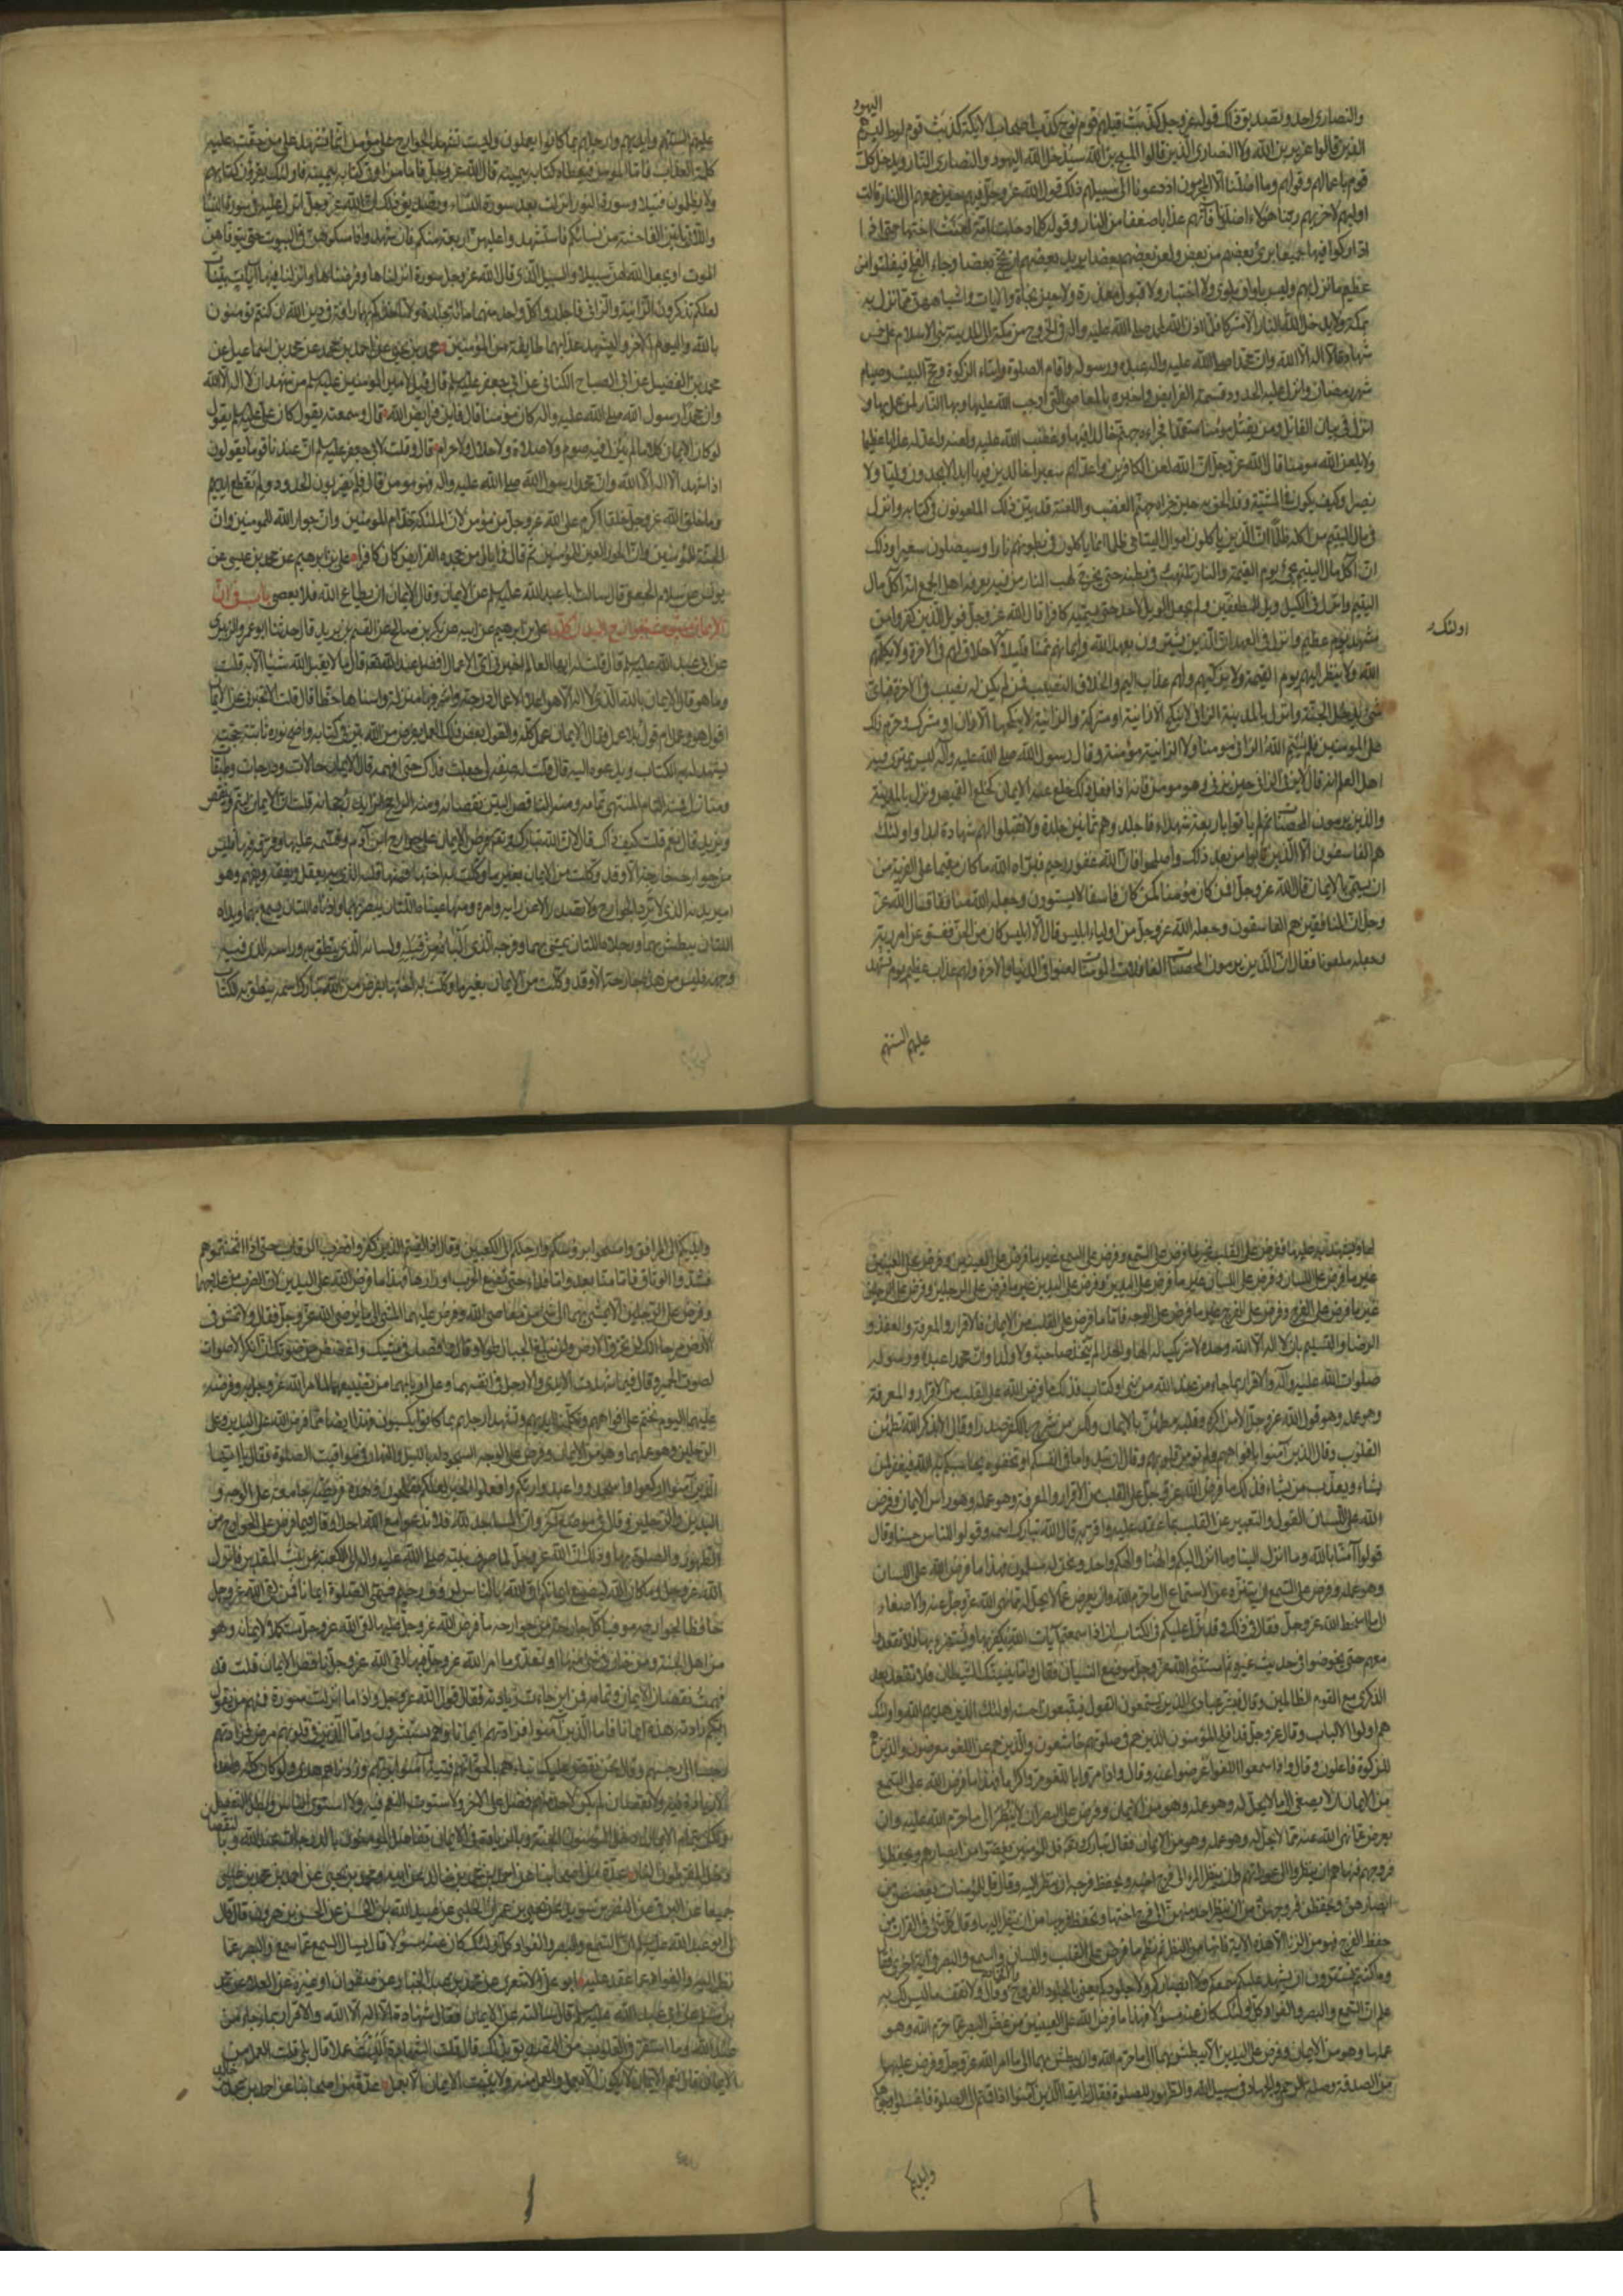 اليهود
والنصارى احد وتصديق ذلك قول الله عز وجل كذبت قبلهم قوم نوح كذب اصحاب الايكة كذبت قوم لوط ليس هم
الذين قالوا عزير بن الله ولا النصارى الذين قالوا المسيح بن الله سيدخل الله اليهود والنصارى النار ويدخل كل
قوم باعمالهم وقولهم وما اضلنا الا المجرمون اذ دعونا الى سبيلهم ذلك قول الله عز وجل فيهم حين جمعهم الى النار قالت
اوليهم لاخريهم ربنا هؤلاء اضلونا فآتهم عذابا ضعفا من النار وقوله كلما دخلت امة لعنت اختها حتى اذا
اداركوا فيها جميعا برئ بعضهم من بعض ولعن بعضهم بعضا يريد بعضهم ان يحج بعضا رجاء الفلج فيفلتوا من
عظيم ما نزل بهم وليس باوان بلوى ولا اختبار ولا قبول معذرة ولا حين نجاة والايات واشباههن مما نزل به
بمكة ولا يدخل الله النار الا مشركا فلما اذن الله لمحمد صلى الله عليه وآله في الخروج من مكة الى المدينة بني الاسلام على خمس
شهادة ان لا اله الا الله وان محمدا صلى الله عليه وآله عبده ورسوله واقام الصلوة وايتاء الزكوة وحج البيت وصيام
شهر رمضان وانزل عليه الحدود وقسمة الفرايض واخبره بالمعاصي التي اوجب الله عليها وبها النار لمن عمل بها و
انزل في بيان القاتل ومن يقتل مؤمنا متعمدا فجزاءه جهنم خالدا فيها وغضب الله عليه ولعنه واعد له عذابا عظيما
ولا يلعن الله مؤمنا قال الله عز وجل ان الله لعن الكافرين واعد لهم سعيرا خالدين فيها ابدا لا يجدون وليا ولا
نصيرا وكيف يكون في المشية وقد الحق به حين جزاه جهنم الغضب واللعنة قد بين ذلك الملعونون في كتابه وانزل
في مال اليتيم من اكله ظلما ان الذين ياكلون اموال اليتامى ظلما انما ياكلون في بطونهم نارا وسيصلون سعيرا وذلك
ان آكل مال اليتيم يجئ يوم القيمة والنار تلتهب في بطنه حتى يخرج لهب النار من فيه يعرفه اهل الجمع انه آكل مال
اليتيم وانزل في الكيل ويل للمطففين ولم يجعل الويل لاحد حتى يسميه كافرا قال الله عز وجل فويل للذين كفروا من
مشهد يوم عظيم وانزل في العهد ان الذين يشترون بعهد الله وايمانهم ثمنا قليلا لا خلاق لهم في الاخرة ولا يكلمهم
اولئك
الله ولا ينظر اليهم يوم القيمة ولا يزكيهم ولهم عذاب اليم والخلاق النصيب فمن لم يكن له نصيب في الاخرة فباي
شئ يدخل الجنة وانزل بالمدينة الزاني لا ينكح الا زانية او مشركة والزانية لا ينكحها الا زان او مشرك وحرم ذلك
على المؤمنين فلم يسم الله الزاني مومنا ولا الزانية مؤمنة وقال رسول الله صلى الله عليه وآله ليس يمتري فيه
اهل العلم انه قال لا يزني الزاني حين يزني وهو مومن فانه اذا فعل ذلك خلع عنه الايمان كخلع القميص ونزل بالمدينة
والذين يرمون المحصنات ثم لم ياتوا باربعة شهداء فاجلدوهم ثمانين جلدة ولا تقبلوا لهم شهادة ابدا واولئك
هم الفاسقون الا الذين تابوا من بعد ذلك واصلحوا فان الله غفور رحيم فبرأه الله ما كان مقيما على الفرية من
ان يسمى بالايمان قال الله عز وجل افمن كان مؤمنا كمن كان فاسقا لا يستوون وجعله الله منافقا قال الله عز
وجل ان المنافقين هم الفاسقون وجعله الله عز وجل من اولياء ابليس قال الا ابليس كان من الجن ففسق عن امر ربه
وجعله ملعونا فقال ان الذين يرمون المحصنات الغافلات المؤمنات لعنوا في الدنيا والاخرة ولهم عذاب عظيم يوم تشهد
عليهم السنتهم
عليهم السنتهم وايديهم وارجلهم بما كانوا يعملون وليست تشهد الجوارح على مؤمن انما تشهد على من حقت عليه
كلمة العذاب فاما المؤمن فيعطى كتابه بيمينه قال الله عز وجل فاما من اوتى كتابه بيمينه فاولئك يقرؤن كتابهم
ولا يظلمون فتيلا وسورة النور انزلت بعد سورة النساء وتصديق ذلك ان الله عز وجل انزل عليه في سورة النساء
واللاتي ياتين الفاحشة من نسائكم فاستشهدوا عليهن اربعة منكم فان شهدوا فامسكوهن في البيوت حتى يتوفاهن
الموت او يجعل الله لهن سبيلا والسبيل الذي قال الله عز وجل سورة انزلناها وفرضناها وانزلنا فيها آيات بينات
لعلكم تذكرون الزانية والزاني فاجلدوا كل واحد منهما مائة جلدة ولا تاخذكم بهما رافة في دين الله ان كنتم تؤمنون
بالله واليوم الاخر وليشهد عذابهما طايفة من المؤمنين محمد بن يحيى عن احمد بن محمد عن محمد بن اسماعيل عن
محمد بن الفضيل عن ابي الصباح الكناني عن ابي جعفر عليه السلم قال قيل لامير المؤمنين عليه السلم من شهد ان لا اله الا الله
وان محمدا رسول الله صلى الله عليه وآله كان مؤمنا قال فاين فرايض الله قال وسمعته يقول كان على عليه السلم يقول
لو كان الايمان كلاما لم ينزل فيه صوم ولا صلوة ولا حلال ولا حرام قال وقلت لابي جعفر عليه السلم ان عندنا قوما يقولون
اذا شهد ان لا اله الا الله وان محمدا رسول الله صلى الله عليه وآله فهو مومن قال فلم يضربون الحدود ولم تقطع ايديهم
وما خلق الله عز وجل خلقا اكرم على الله عز وجل من مؤمن لان الملئكة خدام المؤمنين وان جوار الله للمومنين وان
الجنة للمؤمنين وان الحور العين للمؤمنين ثم قال فما بال من جحد الفرايض كان كافرا على بن ابرهيم عن محمد بن عيسى عن
يونس عن سلام الجعفي قال سالت ابا عبد الله عليه السلم عن الايمان وقال الايمان ان يطاع الله فلا يعصى باب في ان
الايمان مبثوث لجوارح البدن كلها على بن ابراهيم عن ابيه عن بكر بن صالح عن القسم بن بريد قال حدثنا ابو عمرو الزبيري
عن ابي عبد الله عليه السلم قال قلت له ايها العالم اخبرني اي الاعمال افضل عند الله قال ما لا يقبل الله شيئا الا به قلت
وما هو قال الايمان بالله الذي لا اله الا هو اعلا الاعمال درجة واشرفها منزلة واسناها حظا قال قلت الا تخبرني عن الايمان
اقول هو وعمل ام قول بلا عمل فقال الايمان عمل كله والقول بعض ذلك العمل بفرض من الله بين في كتابه واضح نوره ثابتة حجته
يشهد له به الكتاب ويدعوه اليه قال قلت له صفه لي جعلت فداك حتى افهمه قال الايمان حالات ودرجات وطبقات
ومنازل فمنه التام المنتهى تمامه ومنه الناقص البين نقصانه ومنه الراجح الزايد رجحانه قلت ان الايمان ليتم وينقص
ويزيد قال نعم قلت كيف ذلك قال لان الله تبارك وتع فرض الايمان على جوارح ابن آدم وقسمه عليها وفرقه فيها فليس
من جوارحه جارحة الا وقد وكلت من الايمان بغير ما وكلت به اختها فمنها قلبه الذي به يعقل ويفقه ويفهم وهو
امير بدنه الذي لا ترد الجوارح ولا تصدر الا عن رايه وامره ومنها عيناه اللتان يبصر بهما واذناه اللتان يسمع بهما ويداه
اللتان يبطش بهما ورجلاه اللتان يمشي بهما وفرجه الذي الباه من قبله ولسانه الذي ينطق به وراسه الذي فيه
وجهه فليس من هذه جارحة الا وقد وكلت من الايمان بغير ما وكلت به اختها بفرض من الله تبارك اسمه ينطق به الكتاب
لها ويشهد به عليها ففرض على القلب غير ما فرض على السمع وفرض على السمع غير ما فرض على العينين وفرض على العينين
غير ما فرض على اللسان وفرض على اللسان غير ما فرض على اليدين وفرض على اليدين غير ما فرض على الرجلين وفرض على الرجلين
غير ما فرض على الفرج وفرض على الفرج غير ما فرض على الوجه فاما ما فرض على القلب من الايمان فالاقرار والمعرفة والعقد و
الرضا والتسليم بان لا اله الا الله وحده لا شريك له الها واحدا لم يتخذ صاحبة ولا ولدا وان محمدا عبده ورسوله
صلوات الله عليه وآله والاقرار بما جاء من عند الله من نبى او كتاب فذلك ما فرض الله على القلب من الاقرار والمعرفة
وهو عمله وهو قول الله عز وجل الا من اكره وقلبه مطمئن بالايمان ولكن من شرح بالكفر صدرا وقال الا بذكر الله تطمئن
القلوب وقال الذين آمنوا بافواههم ولم تؤمن قلوبهم وقال ان تبدوا ما في انفسكم او تخفوه يحاسبكم به الله فيغفر لمن
يشاء ويعذب من يشاء فذلك ما فرض الله عز وجل على القلب من الاقرار والمعرفة وهو عمله وهو راس الايمان وفرض
الله على اللسان القول والتعبير عن القلب بما عقد عليه واقر به قال الله تبارك اسمه وقولوا للناس حسنا وقال
قولوا آمنا بالله وما انزل الينا وما انزل اليكم والهنا والهكم واحد ونحن له مسلمون فهذا ما فرض الله على اللسان
وهو عمله وفرض على السمع ان يتنزه عن الاستماع الى ما حرم الله وان يعرض عما لا يحل له مما نهى الله عز وجل عنه والاصغاء
الى ما اسخط الله عز وجل فقال في ذلك وقد نزل عليكم في الكتاب ان اذا سمعتم آيات الله يكفر بها ويستهزء بها فلا تقعدوا
معهم حتى يخوضوا في حديث غيره ثم استثنى الله عز وجل موضع النسيان فقال واما ينسينك الشيطان فلا تقعد بعد
الذكرى مع القوم الظالمين وقال فبشر عبادي الذين يستمعون القول فيتبعون احسنه اولئك الذين هديهم الله واولئك
هم اولوا الالباب وقال عز وجل قد افلح المؤمنون الذين هم في صلوتهم خاشعون والذين هم عن اللغو معرضون والذين هم
للزكوة فاعلون وقال واذا سمعوا اللغو اعرضوا عنه وقال واذا مروا باللغو مروا كراما فهذا ما فرض الله على السمع
من الايمان ان لا يصغى الى ما لا يحل له وهو عمله وهو من الايمان وفرض على البصر ان لا ينظر الى ما حرم الله عليه وان
يعرض عما نهى الله عنه مما لا يحل له وهو عمله وهو من الايمان فقال تبارك وتع قل للمؤمنين يغضوا من ابصارهم ويحفظوا
فروجهم فنهاهم ان ينظروا الى عوراتهم وان ينظر المرء الى فرج اخيه ويحفظ فرجه ان ينظر اليه وقال قل للمؤمنات يغضضن من
ابصارهن ويحفظن فروجهن من ان ينظر احديهن الى فرج اختها وتحفظ فرجها من ان ينظر اليها وقال كل شئ في القرآن من
حفظ الفرج فهو من الزنا الا هذه الاية فانها من النظر ثم نظم ما فرض على القلب واللسان والسمع والبصر في آية اخرى فقال
وما كنتم تستترون ان يشهد عليكم سمعكم ولا ابصاركم ولا جلودكم يعني بالجلود الفروج وقال ولا تقف ما ليس لك به
علم ان السمع والبصر والفؤاد كل اولئك كان عنه مسئولا فهذا ما فرض الله على العينين من غض البصر عما حرم الله وهو
عملها وهو من الايمان وفرض على اليدين ان لا يبطش بهما الى ما حرم الله وان يبطش بهما الى ما امر الله عز وجل وفرض عليهما
من الصدقة وصلة الرحم والجهاد في سبيل الله والطهور للصلوة فقال يا ايها الذين آمنوا اذا قمتم الى الصلوة فاغسلوا وجوهكم
وايديكم
وايديكم الى المرافق وامسحوا برؤسكم وارجلكم الى الكعبين وقال فاذا لقيتم الذين كفروا فضرب الرقاب حتى اذا اثخنتموهم
فشدوا الوثاق فاما منا بعد واما فداء حتى تضع الحرب اوزارها فهذا ما فرض الله على اليدين لان الضرب من علاجهما
وفرض على الرجلين ان لا يمشى بهما الى شئ من معاصي الله وفرض عليهما المشي الى ما يرضي الله عز وجل فقال ولا تمش في
الارض مرحا انك لن تخرق الارض ولن تبلغ الجبال طولا وقال واقصد في مشيك واغضض من صوتك ان انكر الاصوات
لصوت الحمير وقال فيما شهدت الايدي والارجل على انفسهما وعلى اربابهما من تضييعهما لما امر الله عز وجل به وفرضه
عليهما اليوم نختم على افواههم وتكلمنا ايديهم وتشهد ارجلهم بما كانوا يكسبون فهذا ايضا مما فرض الله على اليدين وعلى
الرجلين وهو عملهما وهو من الايمان وفرض على الوجه السجود له بالليل والنهار في مواقيت الصلوة فقال يا ايها
الذين آمنوا اركعوا واسجدوا واعبدوا ربكم وافعلوا الخير لعلكم تفلحون فهذه فريضة جامعة على الوجه و
اليدين والرجلين وقال في موضع آخر وان المساجد لله فلا تدعوا مع الله احدا وقال فيما فرض على الجوارح من
الطهور والصلوة بها وذلك ان الله عز وجل لما صرف نبيه صلى الله عليه وآله الى الكعبة عن بيت المقدس فانزل
الله عز وجل وما كان الله ليضيع ايمانكم ان الله بالناس لرؤف رحيم فسمى الصلوة ايمانا فمن لقى الله عز وجل
حافظا لجوارحه موفيا كل جارحة من جوارحه ما فرض الله عز وجل عليها لقى الله عز وجل مستكملا لايمانه وهو
من اهل الجنة ومن خان في شئ منها او تعدى ما امر الله عز وجل فيها لقى الله عز وجل ناقص الايمان قلت قد
فهمت نقصان الايمان وتمامه فمن اين جاءت زيادته فقال قول الله عز وجل واذا ما انزلت سورة فمنهم من يقول
ايكم زادته هذه ايمانا فاما الذين آمنوا فزادتهم ايمانا وهم يستبشرون واما الذين في قلوبهم مرض فزادتهم
رجسا الى رجسهم وقال نحن نقص عليك نباءهم بالحق انهم فتية آمنوا بربهم وزدناهم هدى ولو كان كله واحدا
لا زيادة فيه ولا نقصان لم يكن لاحد منهم فضل على الاخر ولاستوت النعم فيه ولاستوى الناس وبطل التفضيل
ولكن بتمام الايمان دخل المؤمنون الجنة وبالزيادة في الايمان تفاضل المؤمنون بالدرجات عند الله وبالنقصان
دخل المفرطون النار عدة من اصحابنا عن احمد بن محمد بن خالد عن ابيه ومحمد بن يحيى عن احمد بن محمد بن عيسى
جميعا عن البرقي عن النضر بن سويد عن يحيى بن عمران الحلبي عن عبيد الله بن الحسن عن الحسن بن هرون قال قال
لي ابو عبد الله عليه السلم ان السمع والبصر والفؤاد كل اولئك كان عنه مسئولا قال يسال السمع عما سمع والبصر عما
نظر اليه والفؤاد عما عقد عليه ابو على الاشعري عن محمد بن عبد الجبار عن صفوان او غيره عن العلاء عن محمد
بن مسلم عن ابي عبد الله عليه السلم قال سالته عن الايمان فقال شهادة ان لا اله الا الله والاقرار بما جاء من
عند الله وما استقر في القلوب من التصديق بذلك قال قلت الشهادة اليست عملا قال بلى قلت العمل من
الايمان قال نعم الايمان لا يكون الا بعمل والعمل منه ولا يثبت الايمان الا بعمل عدة من اصحابنا عن احمد بن محمد بن خالد